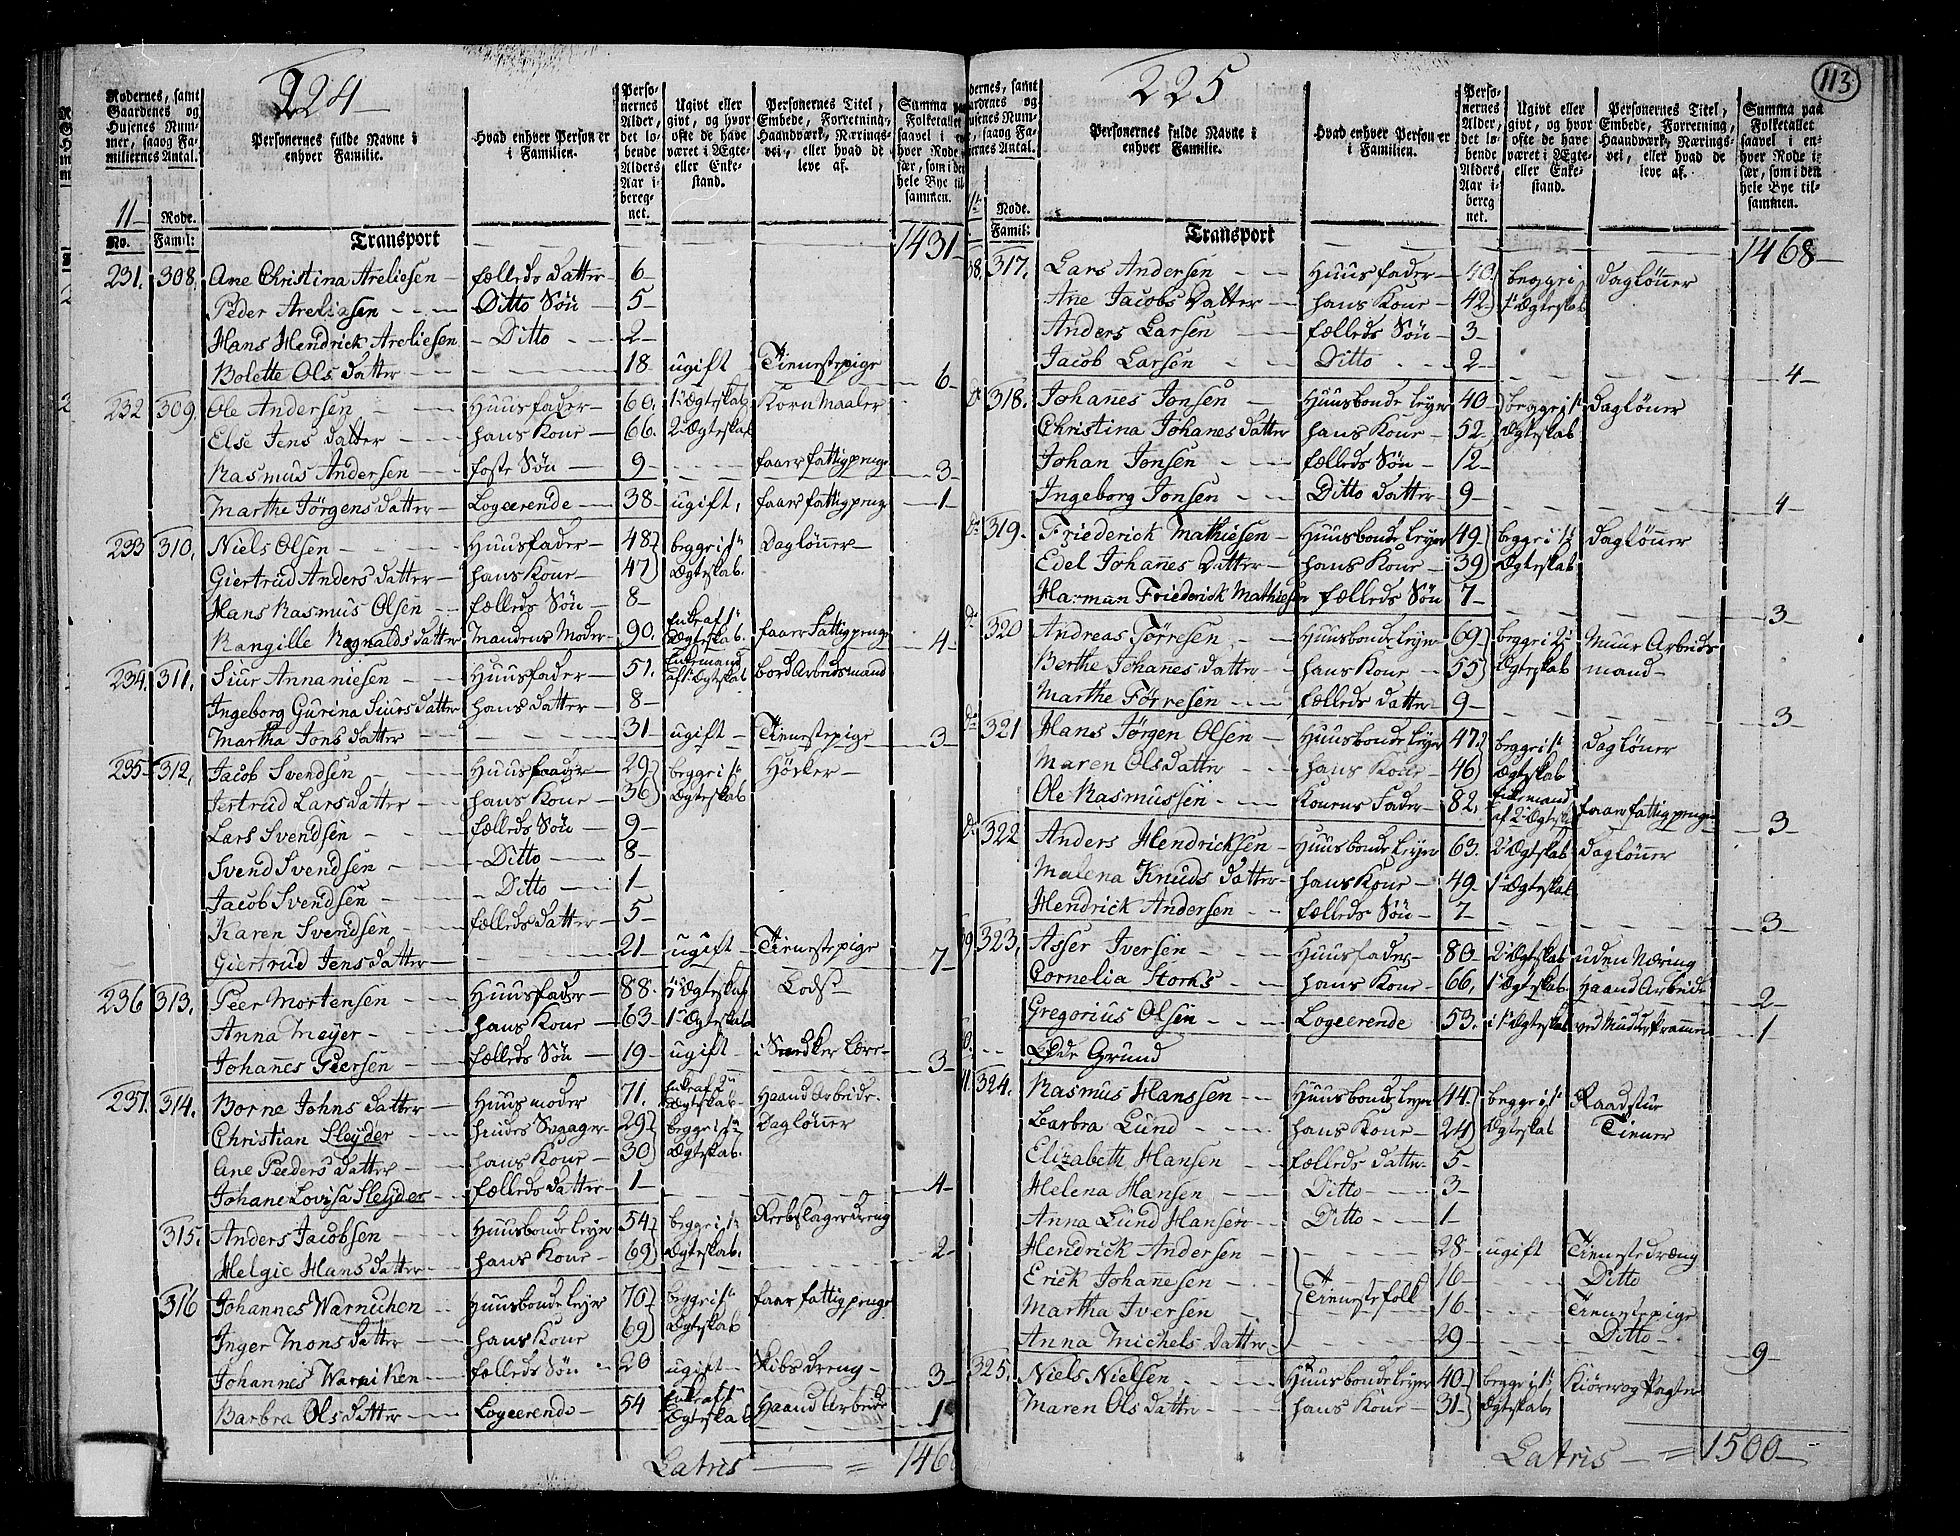 224
Rodernes, samt Gaardenes og Husenes Nummer, saaog Familiernes Antal.
Personernes fulde Navne i enhver Familie.
Hvad enhver Person er i Familien.
Personernes Alder, det løbende Alders Aar iberegnet.
Ugivt eller givt, og hvor ofte de have været i Ægte- eller Enkestand.
Personernes Titel, Embede, Forretning, Haandværk, Næringsvei, eller hvad de leve af.
Summa paa Folketallet saavel i enhver Rode især, som i den hele Bye tilsammen.
11 Rode.
No. Famil:
Transport 1431
231. 308. Ane Christina Areliesen fælleds datter 6
Peder Areliasen Ditto Søn 5
Hans Hendrick Areliesen Ditto 2
Bolette Ols datter 18 ugift Tienestepige 6
232 309. Ole Andersen Huusfader 60. 1te Ægteskab Korn Maaler
Else Jens datter hans Kone 66. 2 Ægteskab
Rasmus Andersen foste Søn 9 faaer fattigpenge 3
Marthe Jörgens datter Logeerende 38 ugift, faaer fattigpenge 1
233 310, Niels Olsen Huusfader 48 begge i 1te Dagløner
Giertrud Anders datter hans Kone 47 Ægteskab.
Hans Rasmus Olsen fælleds Søn 8
Rangille Ragnalds datter Mandens Moder 90. Enke af 1 Ægteskab. faaer Fattigpenge 4
234. 311. Siur Annaniesen Huusfader 51. Enkemand af 1 Ægteskab bord Arbeidsmand
Ingeborg Gurina Siurs datter hans datter 8
Martha Jons datter 31 ugift Tienestepige 3
235 312, Jacob Svendsen Huusfader 29 begge i 1te Høcker
Jertrud Lars datter hans Kone 36 Ægteskab
Lars Svendsen fælleds Søn 9
Svend Svendsen Ditto 8
Jacob Svendsen Ditto 1
Karen Svendsen fælleds datter 5
Giertrud Jens datter 21 ugift Tienestepige 7
236 313. Peer Mortensen Huusfader 88. Ægteskab Lods
Anna Meyer hans Kone 63 1 Ægteskab
Johanes Peersen fælleds Søn 19 ugift i Snedker Lære 3
237. 314. Borne Johns datter Huusmoder 71. Enke af 2 Ægteskab Haand Arbeide
Christian Sleyder hendes Svaager 29 begge i 1te Dagløner
Ane Peeders datter hans Kone 30 Ægteskab.
Johane Lovisa Sleyder fælleds datter 1 4
315. Anders Jacobsen Huusbonde Leyer 54 begge i 1te Reebslagerdreng
Helgie Hans datter hans Kone 69 Ægteskab. 2
316 Johannes Warnichen Huusbonde Leyer 70 begge i 1te faaer fattigpenge
Inger Mons datter hans Kone 69 Ægteskab
Johannes Warniken fælleds Søn 20 ugift Skibsdreng 3
Barbra Ols datter Logeerende 54 Enke af 1 Ægteskab Haand Arbeide 1
Latris = 146
225
113
Personernes fulde Navne i enhver Familie.
Hvad enhver Person er i Familien.
Personernes Alder, det løbende Alders Aar iberegnet.
Ugivt eller givt, og hvor ofte de have været i Ægte- eller Enkestand.
Personernes Titel, Embede, Forretning, Haandværk, Næringsvei, eller hvad de leve af.
Summa paa Folketallet saavel i enhver Rode især, som i den hele Bye tilsammen.
Rode.
Famil:
Transport 1468
38. 317. Lars Andersen Huusfader 40 begge i Dagløner
Ane Jacobs Datter hans Kone 42 1 Ægteskab
Anders Larsen fælleds Søn 3
Jacob Larsen Ditto 2 4
do 318. Johanes Jonsen Huusbonde Leyer 40 begge i 1te Dagløner
Christina Johanes datter hans Kone 52 Ægteskab
Johan Jonsen fælleds Søn 12
Ingeborg Jonsen Ditto datter 9 4
do 319. Friederick Mathiesen Huusbonde Leyer 49 begge i 1te Dagløner
Edel Johanes Datter hans Kone 39 Ægteskab
Harman Friederick Mathiesen fælleds Søn 7 3
do 320 Andreas Törresen Huusbonde Leyer 69 begge i 2te Muur Arbeids
Berthe Johanes datter hans Kone 55 Ægteskab mand
Marthe Törresen fælleds datter 9 3
do 321 Hans Jörgen Olsen Huusbonde Leyer 47 begge i 1te Dagløner
Maren Ols datter hans Kone 46 Ægteskab
Ole Rasmussen Konens Fader 82. Enkemand af 2 Ægteskab faaer fattigpenge 3
do 322 Anders Hendricksen Huusbonde Leyer 63. 2 Ægteskab Dagløner
Malena Knuds datter hans Kone 49 1 Ægteskab
Hendrick Andersen fælleds Søn 7 3
323, Asser Iversen Huusfader 80 2 Ægteskab uden Næring
Cornelia Storks hans Kone 66, 1 Ægteskab Haand Arbeide 2
Gregorius Olsen Logeerende 53. i 1 Ægteskab ved Mudder Prammen 1
Øde Grund
324. Rasmus Hanssen Huusbonde Leyer 44 begge i 1te Raadstue
Barbra Lund hans Kone 24 Ægteskab Tiener
Elizabeth Hansen fælleds datter 5
Helena Hansen Ditto 3
Anna Lund Hansen Ditto 1
Hendrick Andersen 28 ugift Tienestedræng
Erick Johanesen Tienestefolk 16 Ditto
Martha Iversen 16 Tienestepige
Anna Michels datter 29 Ditto 9
325. Niels Nielsen Huusbonde Leyer 40 begge i 1te
Maren Ols datter hans Kone 31 Ægteskab
Latris = 1500